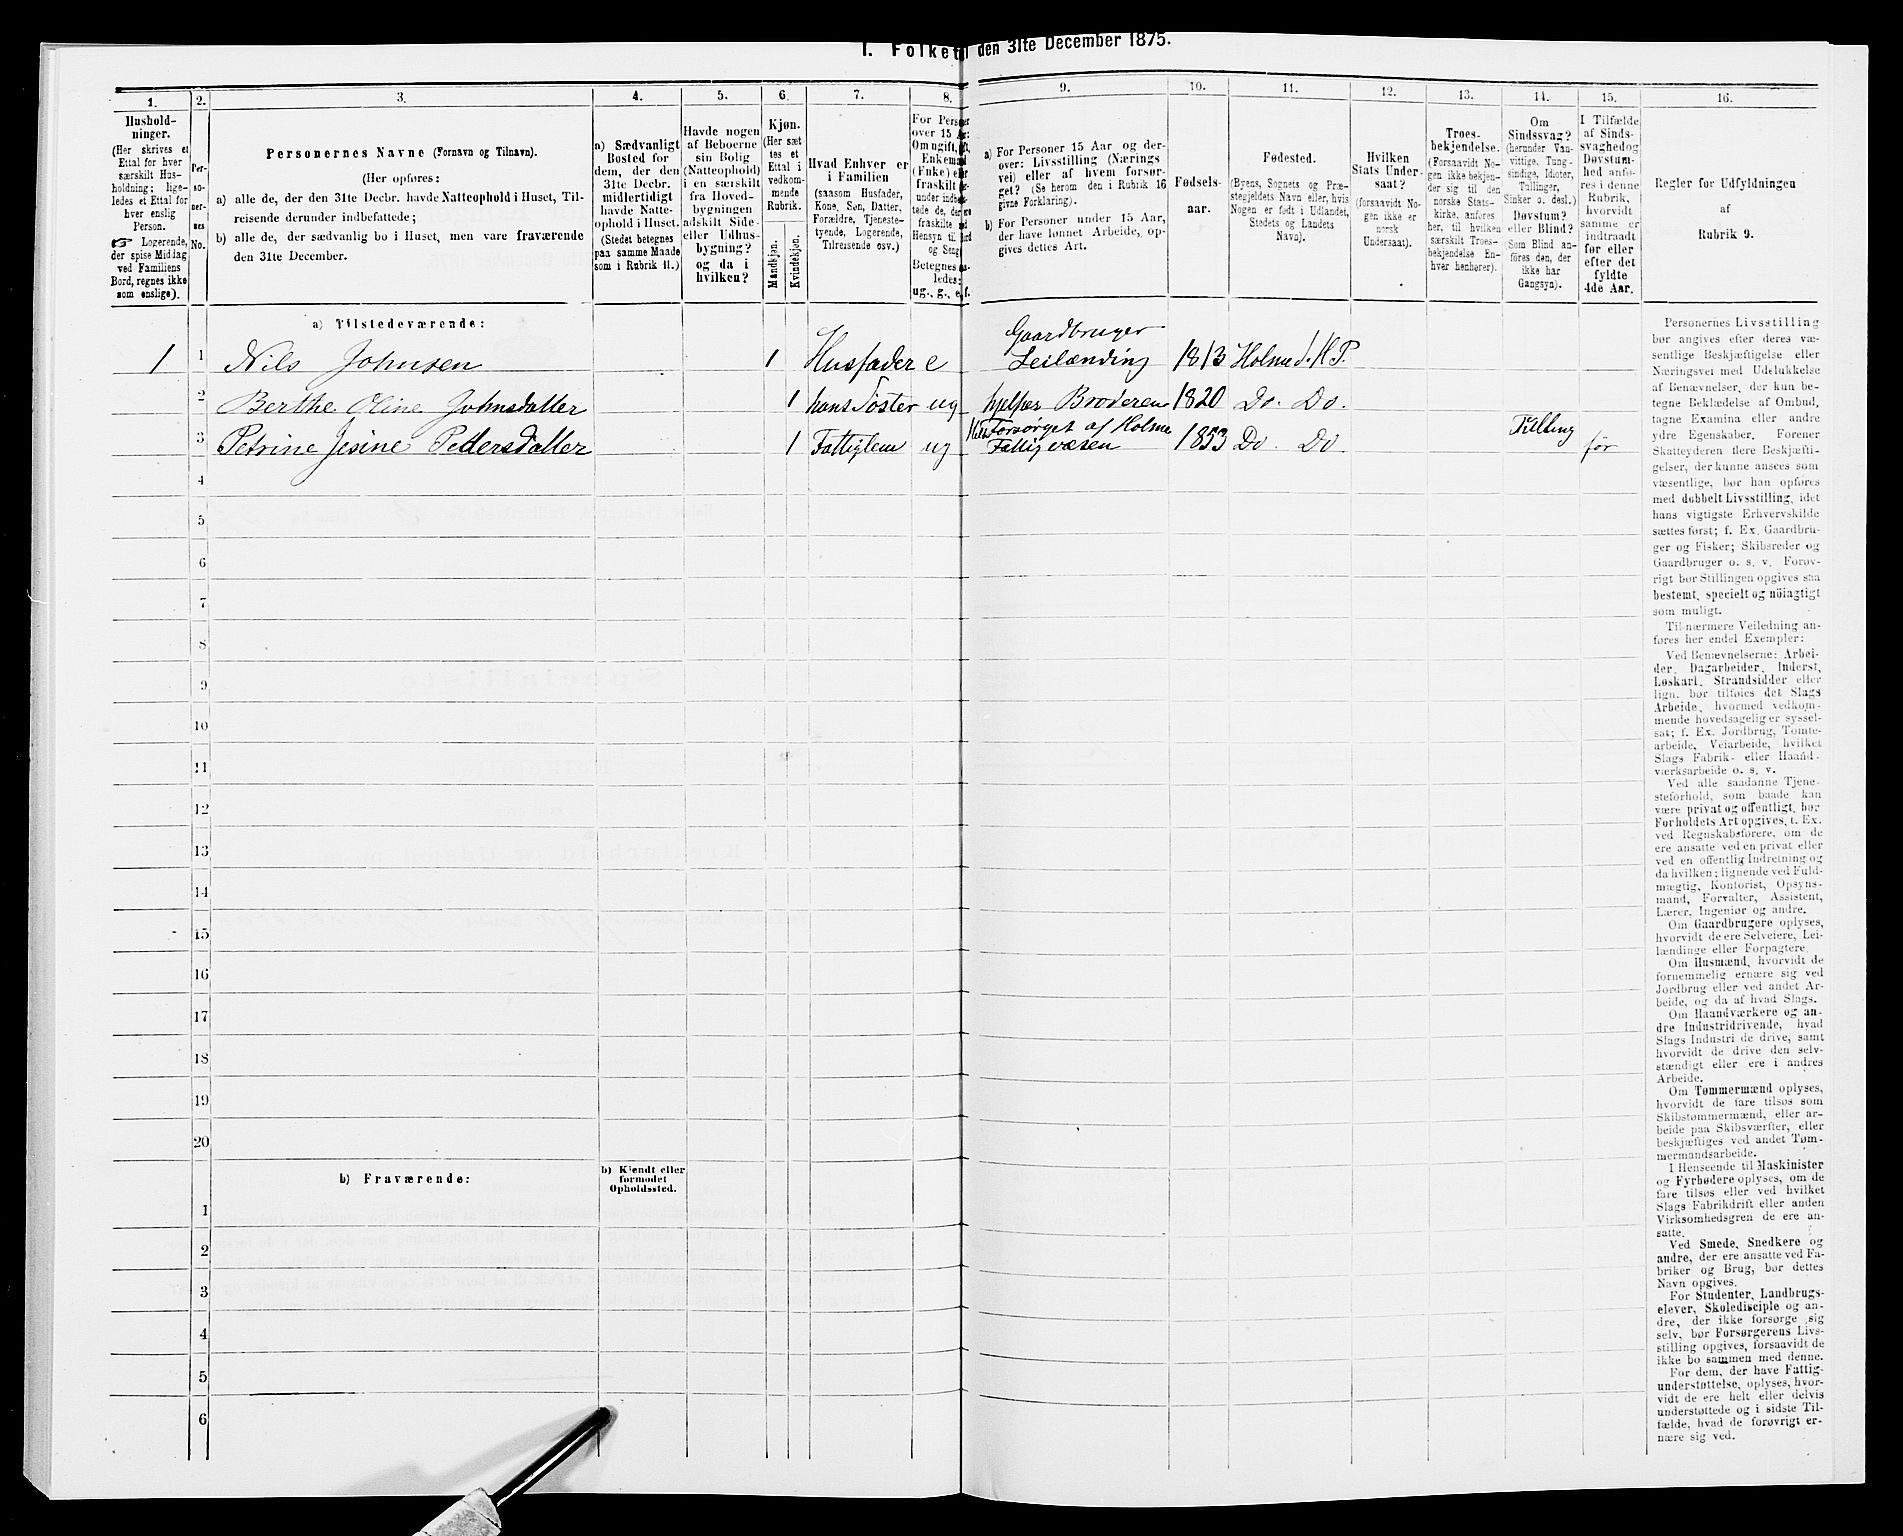 I. Folket den 31te December 1875.
1. 2. 3. 4. 5. 6. 7. 8. 9. 10. 11. 12. 13. 14. 15. 16.
Hushold-
ninger.
(Her skrives et
Ettal for hver
særskilt Hus-
holdning; lige-
ledes et Ettal for
hver enslig
Person.
☞ Logerende,
der spise Middag
ved Familiens
Bord, regnes ikke
som enslige).
Per-
so-
ner-
nes
No.
Personernes Navne (Fornavn og Tilnavn).
(Her opføres:
a) alle de, der den 31te Decbr. havde Natteophold i Huset, Til-
reisende derunder indbefattede;
b) alle de, der sædvanlig bo i Huset, men vare fraværende
den 31te December.
a) Sædvanligt
Bosted for
dem, der den
31te Decbr.
midlertidigt
havde Natte-
ophold i Huset.
(Stedet betegnes
paa samme Maade
som i Rubrik 11.)
Havde nogen
af Beboerne
sin Bolig
(Natteophold)
i en særskilt
fra Hoved-
bygningen
adskilt Side-
eller Udhus-
bygning?
og da i
hvilken?
Kjøn.
(Her sæt
tes et
Ettal i
vedkom-
mende
Rubrik.
Mandkjøn.
Kvindekjøn.
Hvad Enhver er
i Familien
(saasom Husfader,
Kone, Søn, Datter,
Forældre, Tjeneste-
tyende, Logerende,
Tilreisende osv.)
For Person
over 15 Aar:
Om ugift,
Enkemand
(Enke) eller
fraskilt
Betegnes
ledes:
ug., g., e, f.
a) For Personer 15 Aar og der-
over: Livsstilling (Nærings
vei) eller af hvem forsør-
get? (Se herom den i Rubrik 16
givne Forklaring).
b) For Personer under 15 Aar,
der have lønnet Arbeide, op-
gives dettes Art.
Fødsels-
aar.
Fødested.
(Byens, Sognets og Præ-
stegjeldets Navn eller, hvis
Nogen er født i Udlandet,
Stedets og Landets
Navn).
Hvilken
Stats Under-
saat?
(forsaavidt No-
gen ikke er
norsk
Undersaat).
Troes-
bekjendelse.
(Forsaavidt No-
gen ikke bekjen-
der sig til den
norske Stats-
kirke, anføres
her, til hvilken
særskilt Troes-
bekjendelse En-
hver henhører).
Om
Sindssvag?
(herunder Van-
vittige, Tung-
sindige, Idioter,
Tullinger,
Sinker o. desl.)
Døvstum?
eller Blind?
(Som Blind an-
føres den, der
ikke har
Gangsyn).
I Tilfælde
af Sinds-
svaghedog
Døvstum-
hed anfø-
res i denne
Rubrik,
hvorvidt
samme er
indtraadt
før eller
efter det
fyldte
4de Aar.
Regler for Udfyldningen
af
Rubrik 9.
a) Tilstedeværende:
1 1 Nils Johnsen 1 Husfader e Gaardbruger
Leilænding 1813 Holme S. H P.
2 Berthe Oline Johnsdatter 1 hans Søster ug hjelper Broderen 1820 Do. Do.
3 Petrine Jesine Pedersdatter 1 Fattiglem ug Forsørget af Holme
Fattigvæsen 1853 Do. Do. Tulling før
4
5
6
7
8
9
10
11
12
13
14
15
16
17
18
19
20
b) Fraværende:
b) Kjendt eller
formodet
Opholdssted.
1
2
3
4
5
6
Personernes Livsstilling
bør angives efter deres væ-
sentlige Beskjæftigelse eller
Næringsvei med Udelukkelse
af Benævnelser, der kun be-
tegne Beklædelse af Ombud,
tagne Examina eller andre
ydre Egenskaber. Forener
Skatteyderen flere Beskjæfti-
gelser, der kunne ansees som
væsentlige, bør han opføres
med dobbelt Livsstilling, idet
hans vigtigste Erhvervskilde
sættes først; f. Ex. Gaardbru-
ger og Fisker; Skibsreder og
Gaardbruger o. s. v. Forøv-
rigt bør Stillingen opgives saa
bestemt, specielt og nöiagtigt
som muligt.
Til nærmere Veiledning an-
føres her endel Exempler:
Ved Benævnelserne: Arbei-
der, Dagarbeider, Inderst,
Løskarl, Strandsidder eller
lign. bør tilføies det Slags
Arbeide, hvormed vedkom-
mende hovedsagelig er syssel-
sat; f. Ex. Jordbrug, Tomte-
arbeide, Veiarbeide, hvilket
Slags Fabrik- eller Haand-
værksarbeide o. s. v.
Ved alle saadanne Tjene-
steforhold, som baade kan
være privat og offentligt, bør
Forholdets Art opgives, f. Ex.
ved Regnskabsførere, om de
ere ansatte ved en privat eller
ved en offentlig Indretning og
da hvilken; lignende ved Fuld-
mægtig, Kontorist, Opsyns-
mand, Forvalter, Assistent,
Lærer, Ingeniør og andre.
Om Gaardbrugere oplyses,
hvorvidt de ere Selveiere, Lei-
lændinge eller Forpagtere.
Om Husmænd, hvorvidt de
fornemmelig ernære sig ved
Jordbrug eller ved andet Ar-
beide, og da af hvad Slags.
Om Haandværkere og an-
dre Industridrivende, hvad
Slags Industri de drive, samt
hvorvidt de drive den selv-
stændigt eller ere i andres
Arbeide.
Om Tømmermænd oplyses,
hvorvidt de fare tilsøs som
Skibstømmermænd, eller ar-
beide paa Skibsværfter, eller
beskjæftiges ved andet Tøm-
mermandsarbeide.
I Henseende til Maskinister
og Fyrbødere oplyses, om de
fare tilsøs eller ved hvilket
Slags Fabrikdrift eller anden
Virksomhedsgren de ere an-
satte.
Ved Smede, Snedkere og
andre, der ere ansatte ved Fa-
briker og Brug, bør dettes
Navn opgives.
For Studenter, Landbrugs-
elever, Skoledisciple og an-
dre, der ikke forsørge sig
selv, bør Forsørgerens Livs-
stilling opgives, forsaavidt de
ikke bo sammen med denne.
For dem, der have Fattig-
understøttelse, oplyses, hvor-
vidt de ere helt eller delvis
understøttede og i sidste Til-
fælde, hvad de forøvrigt er-
nære sig ved.